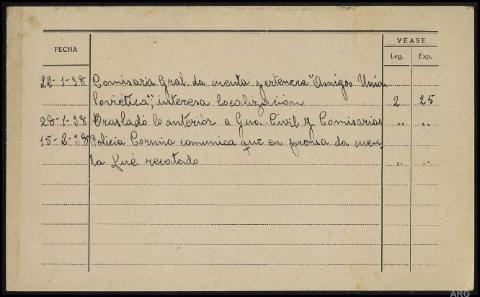 FECHA
VEASE
Leg. Exp.
22-1-38 Comisaria Gral. da cuenta pertenecia "Amigos Union
Sovietica", interesa localización 2 25
28-1-38 Traslado lo anterior a Gno. Civil y Comisarias " "
15-2-38 Policia Coruña comunica que en prensa da cuen-
ta fue recotado " "
ARG